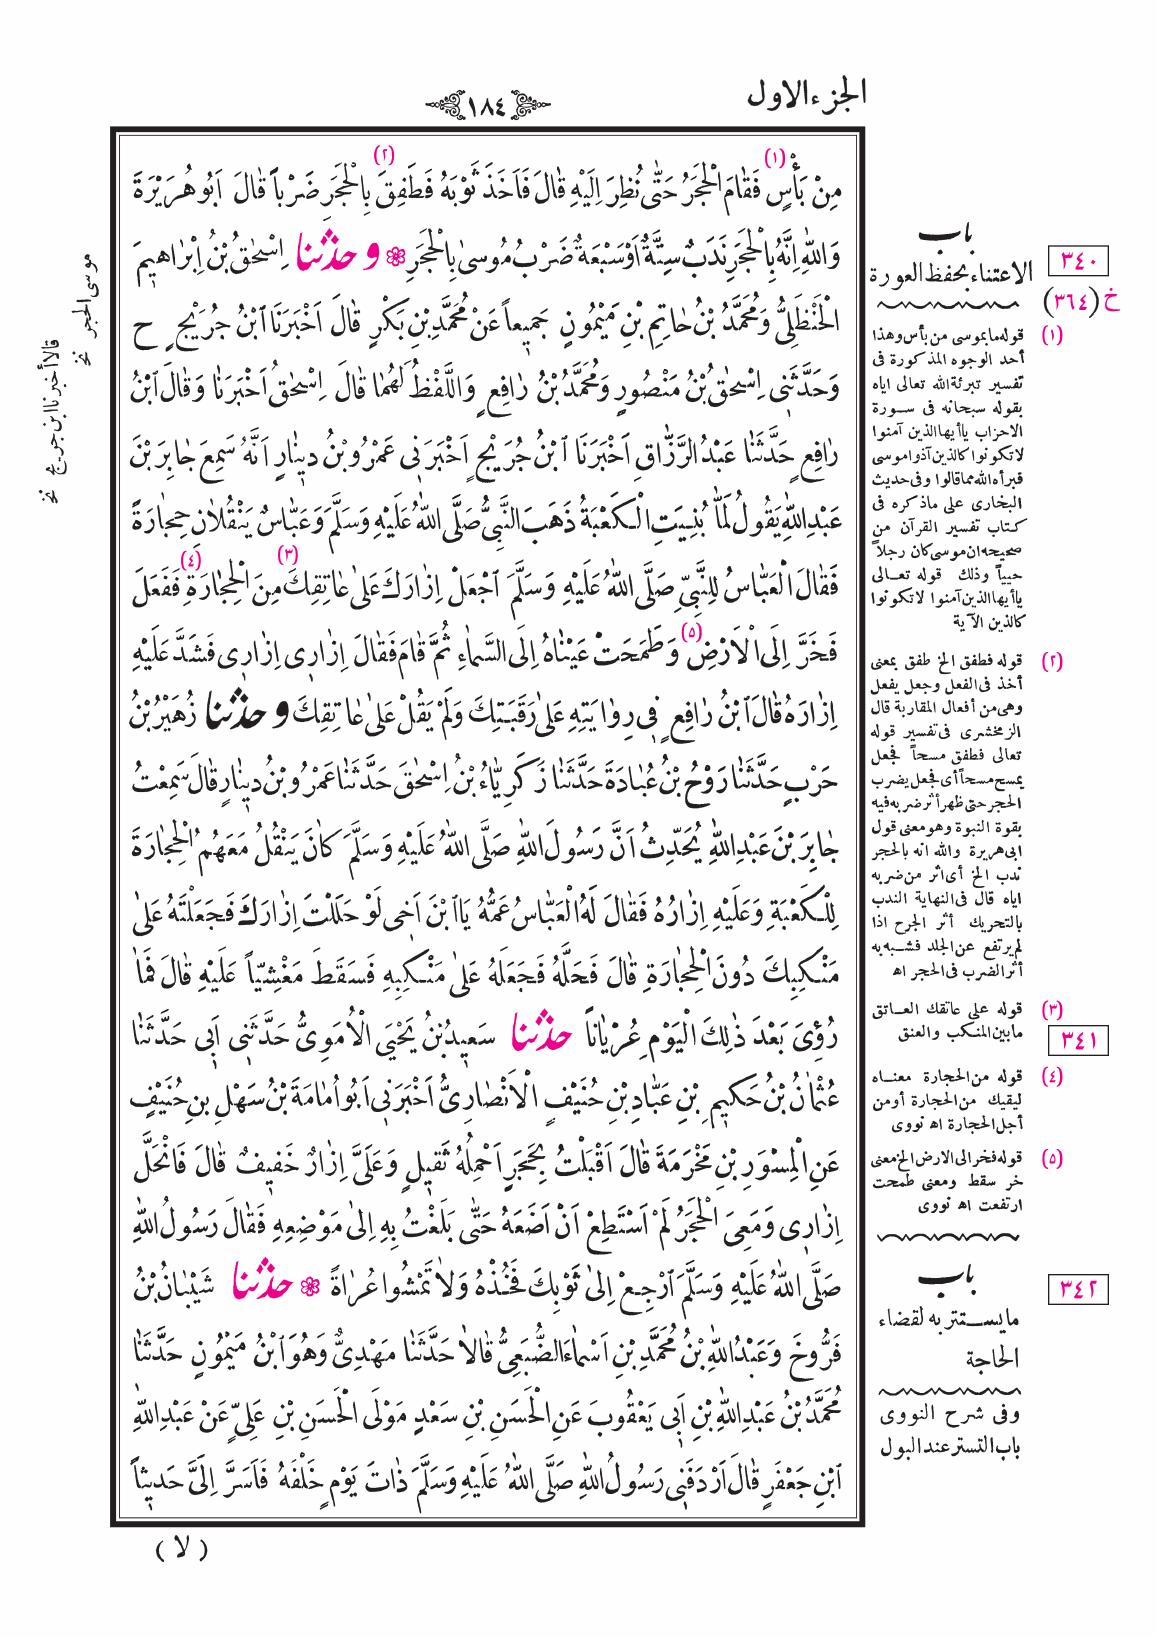 الجزء الاول
١٨٤
مِنْ بَأْسٍ (١) فَقَامَ الْحَجَرُ حَتّٰى نُظِرَ اِلَيْهِ قَالَ فَاَخَذَ ثَوْبَهُ فَطَفِقَ (٢) بِالْحَجَرِ ضَرْباً قَالَ اَبُو هُرَيْرَةَ
وَاللهِ اِنَّهُ بِالْحَجَرِ نَدَبٌ سِتَّةٌ اَوْ سَبْعَةٌ ضَرْبُ مُوسٰى بِالْحَجَرِ ❁ و حدثنا اِسْحٰقُ بْنُ اِبْرٰاهِيمَ
الْحَنْظَلِىُّ وَمُحَمَّدُ بْنُ حَاتِمِ بْنِ مَيْمُونٍ جَمِيعاً عَنْ مُحَمَّدِ بْنِ بَكْرٍ قَالَ اَخْبَرَنَا ابْنُ جُرَيْجٍ ح
وَحَدَّثَنِى اِسْحٰقُ بْنُ مَنْصُورٍ وَمُحَمَّدُ بْنُ رَافِعٍ وَاللَّفْظُ لَهُمَا قَالَ اِسْحٰقُ اَخْبَرَنَا وَقَالَ ابْنُ
رَافِعٍ حَدَّثَنَا عَبْدُ الرَّزَّاقِ اَخْبَرَنَا ابْنُ جُرَيْجٍ اَخْبَرَنِى عَمْرُو بْنُ دِينَارٍ اَنَّهُ سَمِعَ جَابِرَ بْنَ
عَبْدِ اللهِ يَقُولُ لَمَّا بُنِيَتِ الْكَعْبَةُ ذَهَبَ النَّبِىُّ صَلَّى اللهُ عَلَيْهِ وَسَلَّمَ وَعَبَّاسٌ يَنْقُلَانِ حِجَارَةً
فَقَالَ الْعَبَّاسُ لِلنَّبِىِّ صَلَّى اللهُ عَلَيْهِ وَسَلَّمَ اجْعَلْ اِزَارَكَ عَلىٰ عَاتِقِكَ (٣) مِنَ الْحِجَارَةِ (٤) فَفَعَلَ
فَخَرَّ اِلَى الْاَرْضِ (٥) وَطَمَحَتْ عَيْنَاهُ اِلَى السَّمَاءِ ثُمَّ قَامَ فَقَالَ اِزَارِى اِزَارِى فَشَدَّ عَلَيْهِ
اِزَارَهُ قَالَ ابْنُ رَافِعٍ فِى رِوَايَتِهِ عَلىٰ رَقَبَتِكَ وَلَمْ يَقُلْ عَلىٰ عَاتِقِكَ و حدثنا زُهَيْرُ بْنُ
حَرْبٍ حَدَّثَنَا رَوْحُ بْنُ عُبَادَةَ حَدَّثَنَا زَكَرِيَّاءُ بْنُ اِسْحٰقَ حَدَّثَنَا عَمْرُو بْنُ دِينَارٍ قَالَ سَمِعْتُ
جَابِرَ بْنَ عَبْدِ اللهِ يُحَدِّثُ اَنَّ رَسُولَ اللهِ صَلَّى اللهُ عَلَيْهِ وَسَلَّمَ كَانَ يَنْقُلُ مَعَهُمُ الْحِجَارَةَ
لِلْكَعْبَةِ وَعَلَيْهِ اِزَارُهُ فَقَالَ لَهُ الْعَبَّاسُ عَمُّهُ يَا ابْنَ اَخِى لَوْ حَلَلْتَ اِزَارَكَ فَجَعَلْتَهُ عَلىٰ
مَنْكِبِكَ دُونَ الْحِجَارَةِ قَالَ فَحَلَّهُ فَجَعَلَهُ عَلىٰ مَنْكِبِهِ فَسَقَطَ مَغْشِيّاً عَلَيْهِ قَالَ فَمَا
رُؤِىَ بَعْدَ ذٰلِكَ الْيَوْمِ عُرْيَاناً حدثنا سَعِيدُ بْنُ يَحْيَى الْاُمَوِىُّ حَدَّثَنِى اَبِى حَدَّثَنَا
عُثْمَانُ بْنُ حَكِيمِ بْنِ عَبَّادِ بْنِ حُنَيْفٍ الْاَنْصَارِىُّ اَخْبَرَنِى اَبُو اُمَامَةَ بْنُ سَهْلِ بْنِ حُنَيْفٍ
عَنِ الْمِسْوَرِ بْنِ مَخْرَمَةَ قَالَ اَقْبَلْتُ بِحَجَرٍ اَحْمِلُهُ ثَقِيلٍ وَعَلَىَّ اِزَارٌ خَفِيفٌ قَالَ فَانْحَلَّ
اِزَارِى وَمَعِىَ الْحَجَرُ لَمْ اَسْتَطِعْ اَنْ اَضَعَهُ حَتّٰى بَلَغْتُ بِهِ اِلىٰ مَوْضِعِهِ فَقَالَ رَسُولُ اللهِ
صَلَّى اللهُ عَلَيْهِ وَسَلَّمَ ارْجِعْ اِلىٰ ثَوْبِكَ فَخُذْهُ وَلَا تَمْشُوا عُرَاةً ❁ حدثنا شَيْبَانُ بْنُ
فَرُّوخَ وَعَبْدُ اللهِ بْنُ مُحَمَّدِ بْنِ اَسْمَاءَ الضُّبَعِىُّ قَالَا حَدَّثَنَا مَهْدِىٌّ وَهُوَ ابْنُ مَيْمُونٍ حَدَّثَنَا
مُحَمَّدُ بْنُ عَبْدِ اللهِ بْنِ اَبِى يَعْقُوبَ عَنِ الْحَسَنِ بْنِ سَعْدٍ مَوْلَى الْحَسَنِ بْنِ عَلِىٍّ عَنْ عَبْدِ اللهِ
ابْنِ جَعْفَرٍ قَالَ اَرْدَفَنِى رَسُولُ اللهِ صَلَّى اللهُ عَلَيْهِ وَسَلَّمَ ذَاتَ يَوْمٍ خَلْفَهُ فَاَسَرَّ اِلَىَّ حَدِيثاً
( لا )
باب
الاعتناء بحفظ العورة
٣٤٠
خ (٣٦٤)
(١) قوله ما بموسى من بأس وهذا
أحد الوجوه المذكورة فى
تفسير تبرئة الله تعالى اياه
بقوله سبحانه فى سورة
الاحزاب يا أيها الذين آمنوا
لا تكونوا كالذين آذوا موسى
فبرأه الله مما قالوا وفى حديث
البخارى على ما ذكره فى
كتاب تفسير القرآن من
صحيحه ان موسى كان رجلاً
حيياً وذلك قوله تعالى
يا أيها الذين آمنوا لا تكونوا
كالذين الآية
(٢) قوله فطفق الخ طفق بمعنى
أخذ فى الفعل وجعل يفعل
وهى من أفعال المقاربة قال
الزمخشرى فى تفسير قوله
تعالى فطفق مسحاً فجعل
يمسح مسحاً أى فجعل يضرب
الحجر حتى ظهر أثر ضربه فيه
بقوة النبوة وهو معنى قول
ابى هريرة والله انه بالحجر
ندب الخ أى اثر من ضربه
اياه قال فى النهاية الندب
بالتحريك أثر الجرح اذا
لم يرتفع عن الجلد فشبه به
أثر الضرب فى الحجر اه
(٣) قوله على عاتقك العاتق
ما بين المنكب والعنق
٣٤١
(٤) قوله من الحجارة معناه
ليقيك من الحجارة أو من
أجل الحجارة اه نووى
(٥) قوله فخر الى الارض الخ معنى
خر سقط ومعنى طمحت
ارتفعت اه نووى
باب
ما يستتر به لقضاء
الحاجة
٣٤٢
وفى شرح النووى
باب التستر عند البول
موسى الحجر نخ
قالا أخبرنا ابن جريج نخ